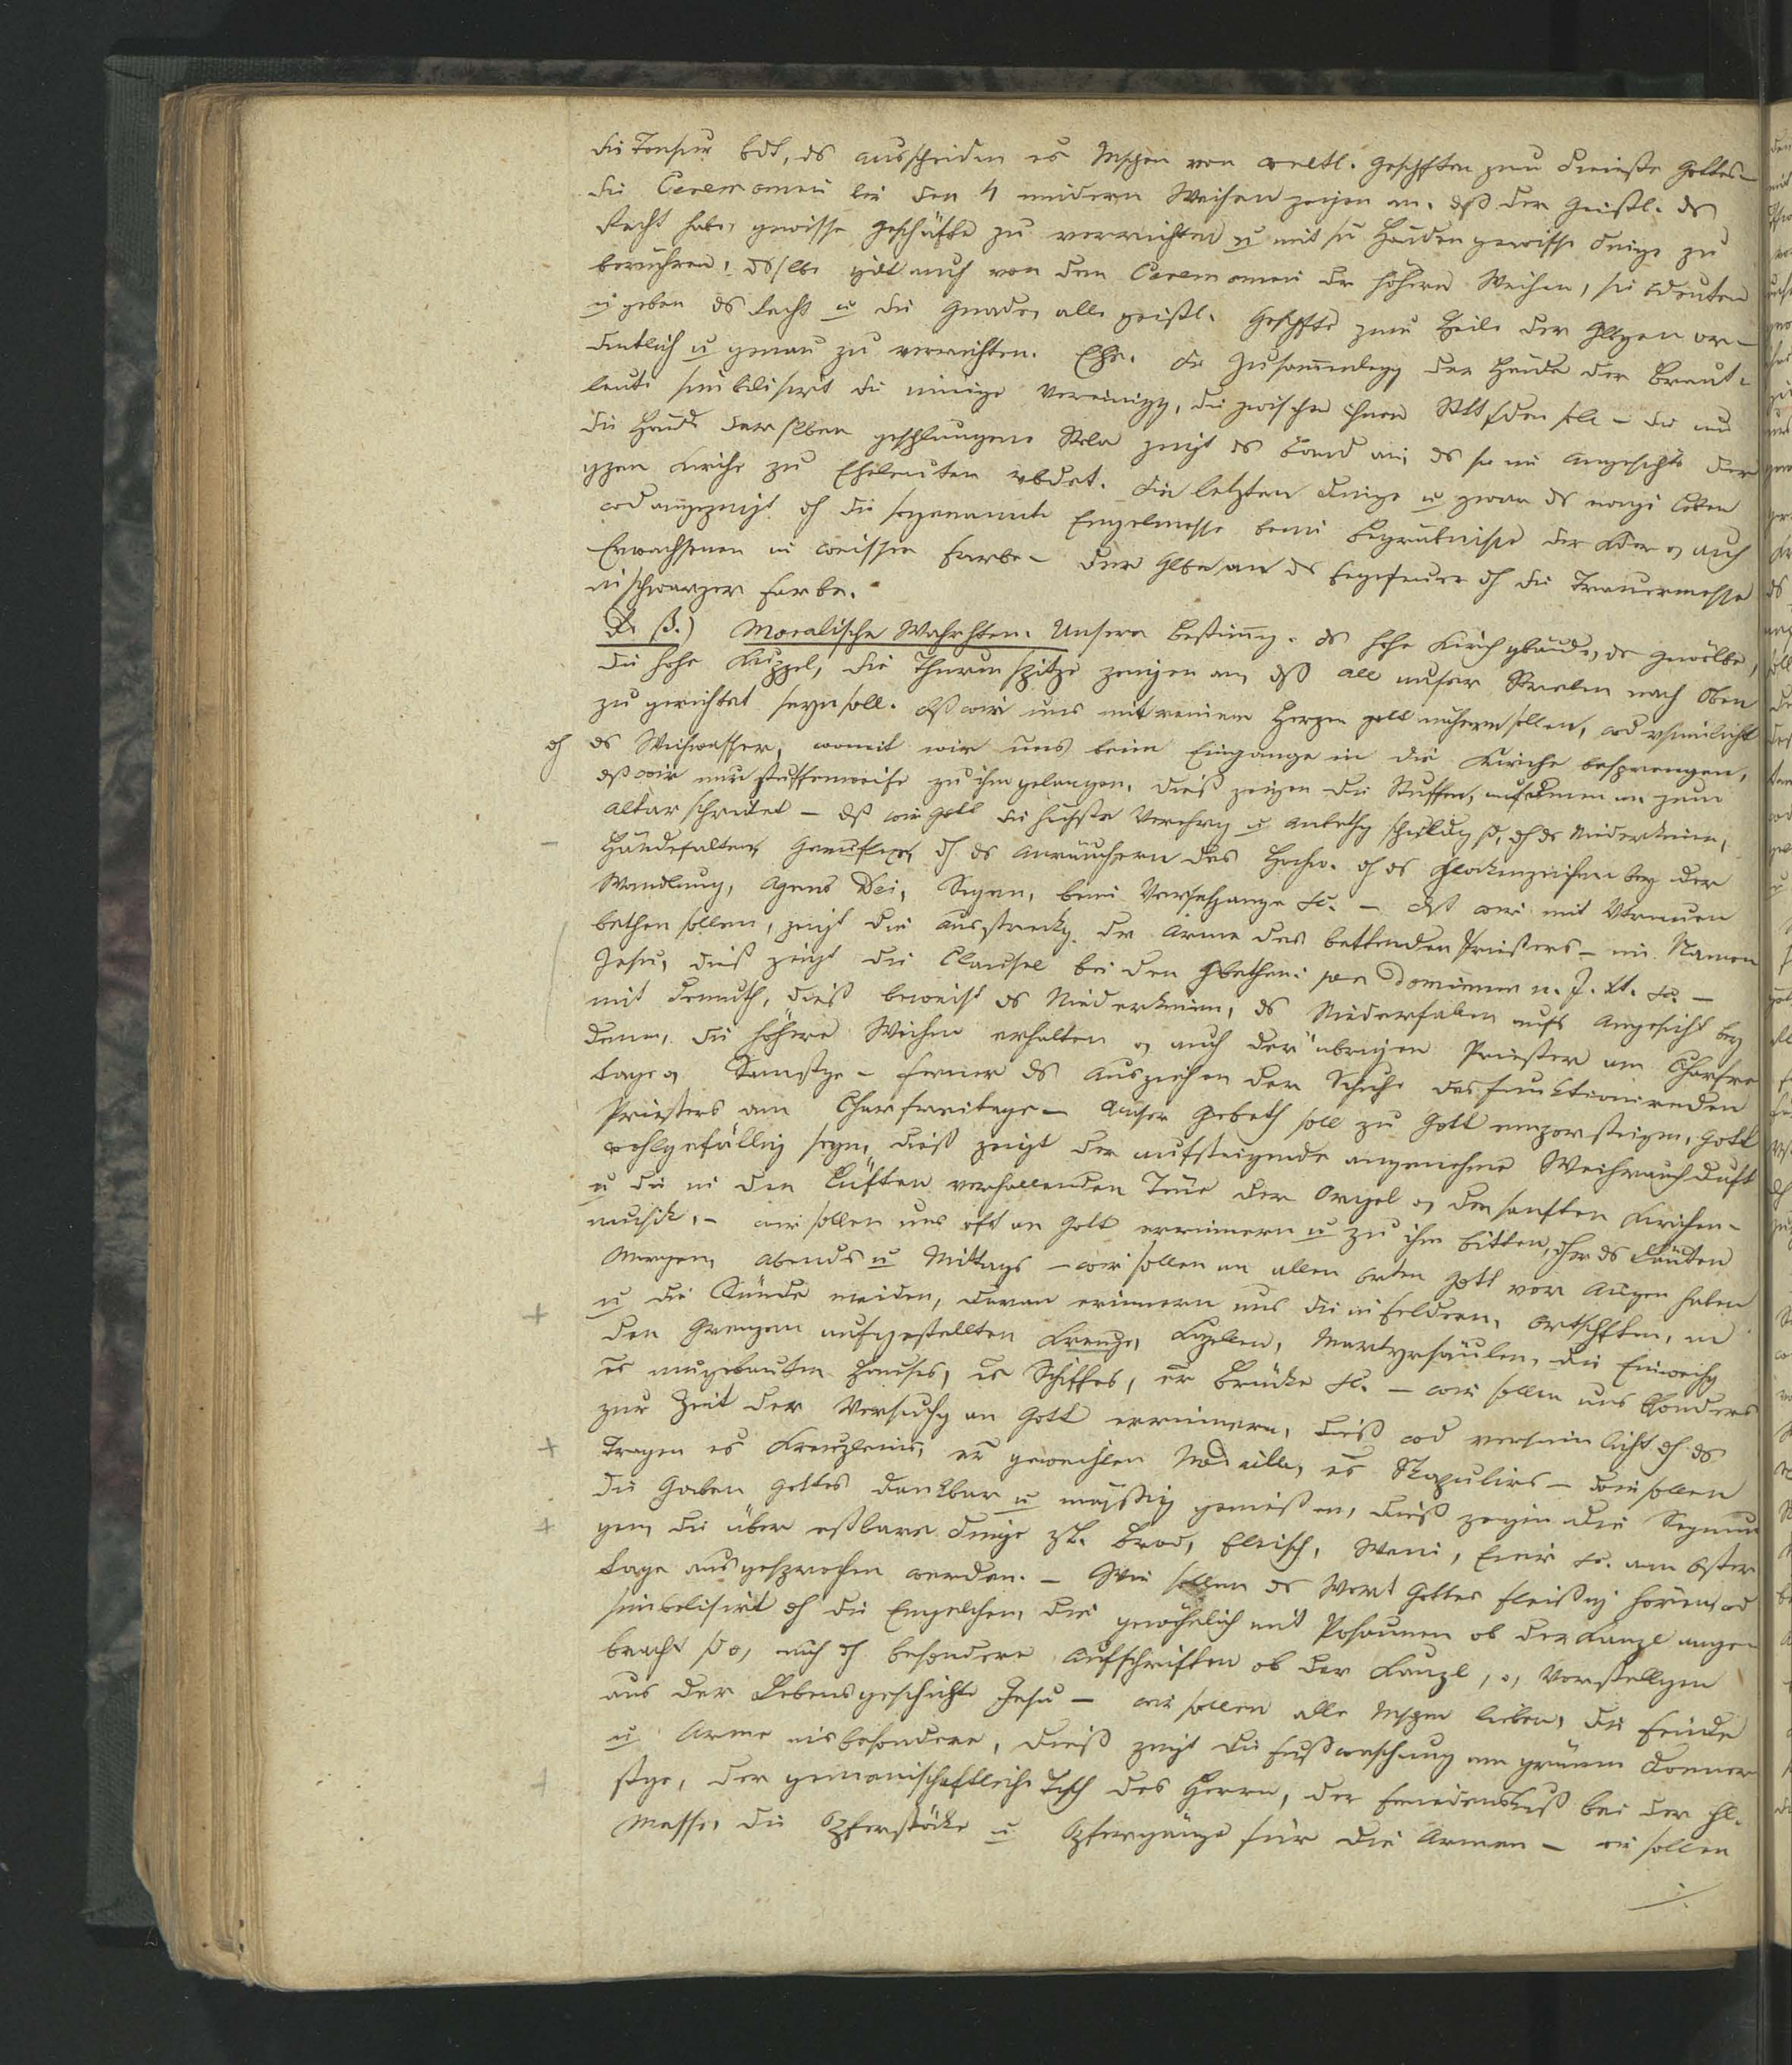 die Tonsur bdt, ds ausscheiden es Mschen von weltl. Geschften zum Dienste Gottes –
die Ceremonien bei den 4 mindern Weihen zeigen an, dß der Geistl. ds
Recht habe, gewisse Geschäfte zu verrichten u mit sn Händen gewisse Dinge zu
berühren; dsslbe gilt auch von den Ceremonien der höhern Weihen, sie bdeuten
u geben ds Recht u die Gnade, alle geistl. Geschfte zum Heile der Glbgen or-
dentlich u genau zu verrichten. Ehe. Die Zusammenlegg der Hände der Braut-
leute simbolisirt die innige Vereinigg, die zwischen ihnen Statt fden soll – die um
die Hände derselben geschlungene Stola zeigt ds Band an, ds sie im Angesichte der
gzen Kirche zu Eheleuten vbdet. Die letzten Dinge u zwar ds ewige Leben
wd angezeigt dh die sogenannte Engelmesse beim Begräbnisse der Kder, auch
Erwachsenen in weisser Farbe – der Glbe an ds Fegefeuer dh die Trauermesse
in schwarzer Farbe.
β.) Moralische Wahrhten. Unsere Bestimg. ds hohe Kirchgbäude, ds Gewölbe,
die hohe Kuppel, die Thurmspitze zeigen an, dß all unser Streben nach Oben
zu gerichtet seyn soll. Dß wir uns mit reinem Herzen Gott nähern sollen, wd vsinnlicht
dh ds Weihwasser, womit wir uns beim Eingange in die Kirche besprengen,
dß wir nur stuffenweise zu ihm gelangen, dieß zeigen die Stuffen, auf denen man zum
Altar schreitet – dß wir Gott die höchste Verehrg u Anbethg schuldig sd, dh ds Niederknien,
Händefalten, Genuflex, dh ds Anräuchern des Hochw. dh ds Glockenzeichen bey der
Wandlung, Agnus Dei, Segen, beim Versehgange etc. – dß wir mit Vtrauen
bethen sollen, zeigt die Ausstreckg der Arme des bettenden Priesters – im Namen
Jesu, dieß zeigt die Clausel bei den Gbethen: per Dominum n. J. Xt. etc. –
mit Demuth, dieß beweist ds Niederknien, ds Niederfallen aufs Angesicht bey
denen, die höhere Weihen erhalten, auch der übrigen Priester am Charfrei
tage, Samstge – ferner ds Ausziehen der Schuhe des funktionirenden
Priesters am Charfreitage – Unser Gebeth soll zu Gott emporsteigen, Gott
wohlgefällig seyn, dieß zeigt der aufsteigende angenehme Weihrauchduft
u die in den Lüften verhallenden Töne der Orgel, der sanften Kirchen-
musik, – wir sollen uns oft an Gott errinnern u zu ihm bitten, ds Läuten
Morgens, Abends u Mittags – wir sollen an allen Orten Gott vor Augen haben
u die Sünde meiden, daran erinnern uns die in Feldern, Ortschften, an
den Grenzen aufgestellten Kreuze, Kapellen, Martyrsäulen, die Einweihg
es neugebauten Hauses, es Schiffes, er Brücke etc. – wir sollen uns bsonders
zur Zeit der Versuchg an Gott errinnern, dieß wd versinnlicht dh ds
Tragen es Kreuzleins, er geweihten Medaille, es Skapuliers – wir sollen
die Gaben Gottes dankbar u mässig genießen, dieß zeigen die Segnun
gen, die über eßbare Dinge zB. Brod, Fleisch, Wein, Eier etc. am Oster
tage ausgesprochen werden. – Wir sollen ds Wort Gottes fleißig hören, wd
simbolisirt dh die Engelchen, die gewöhnlich mit Posaunen ob der Kanzl ange-
bracht sd, auch dh besondere Aufschriften ob der Kanzl, Vorstellgen
aus der Lebensgeschichte Jesu – wir sollen alle Mschen lieben, die Feinde
u Arme insbesondere, dieß zeigt die Fußwaschung am grünen Donner
stge, der gemeinschaftliche Tisch des Herrn, der Friedenskuß bei der hl.
Messe, die Opferstöcke u Opfergänge für die Armen – wir sollen
./.